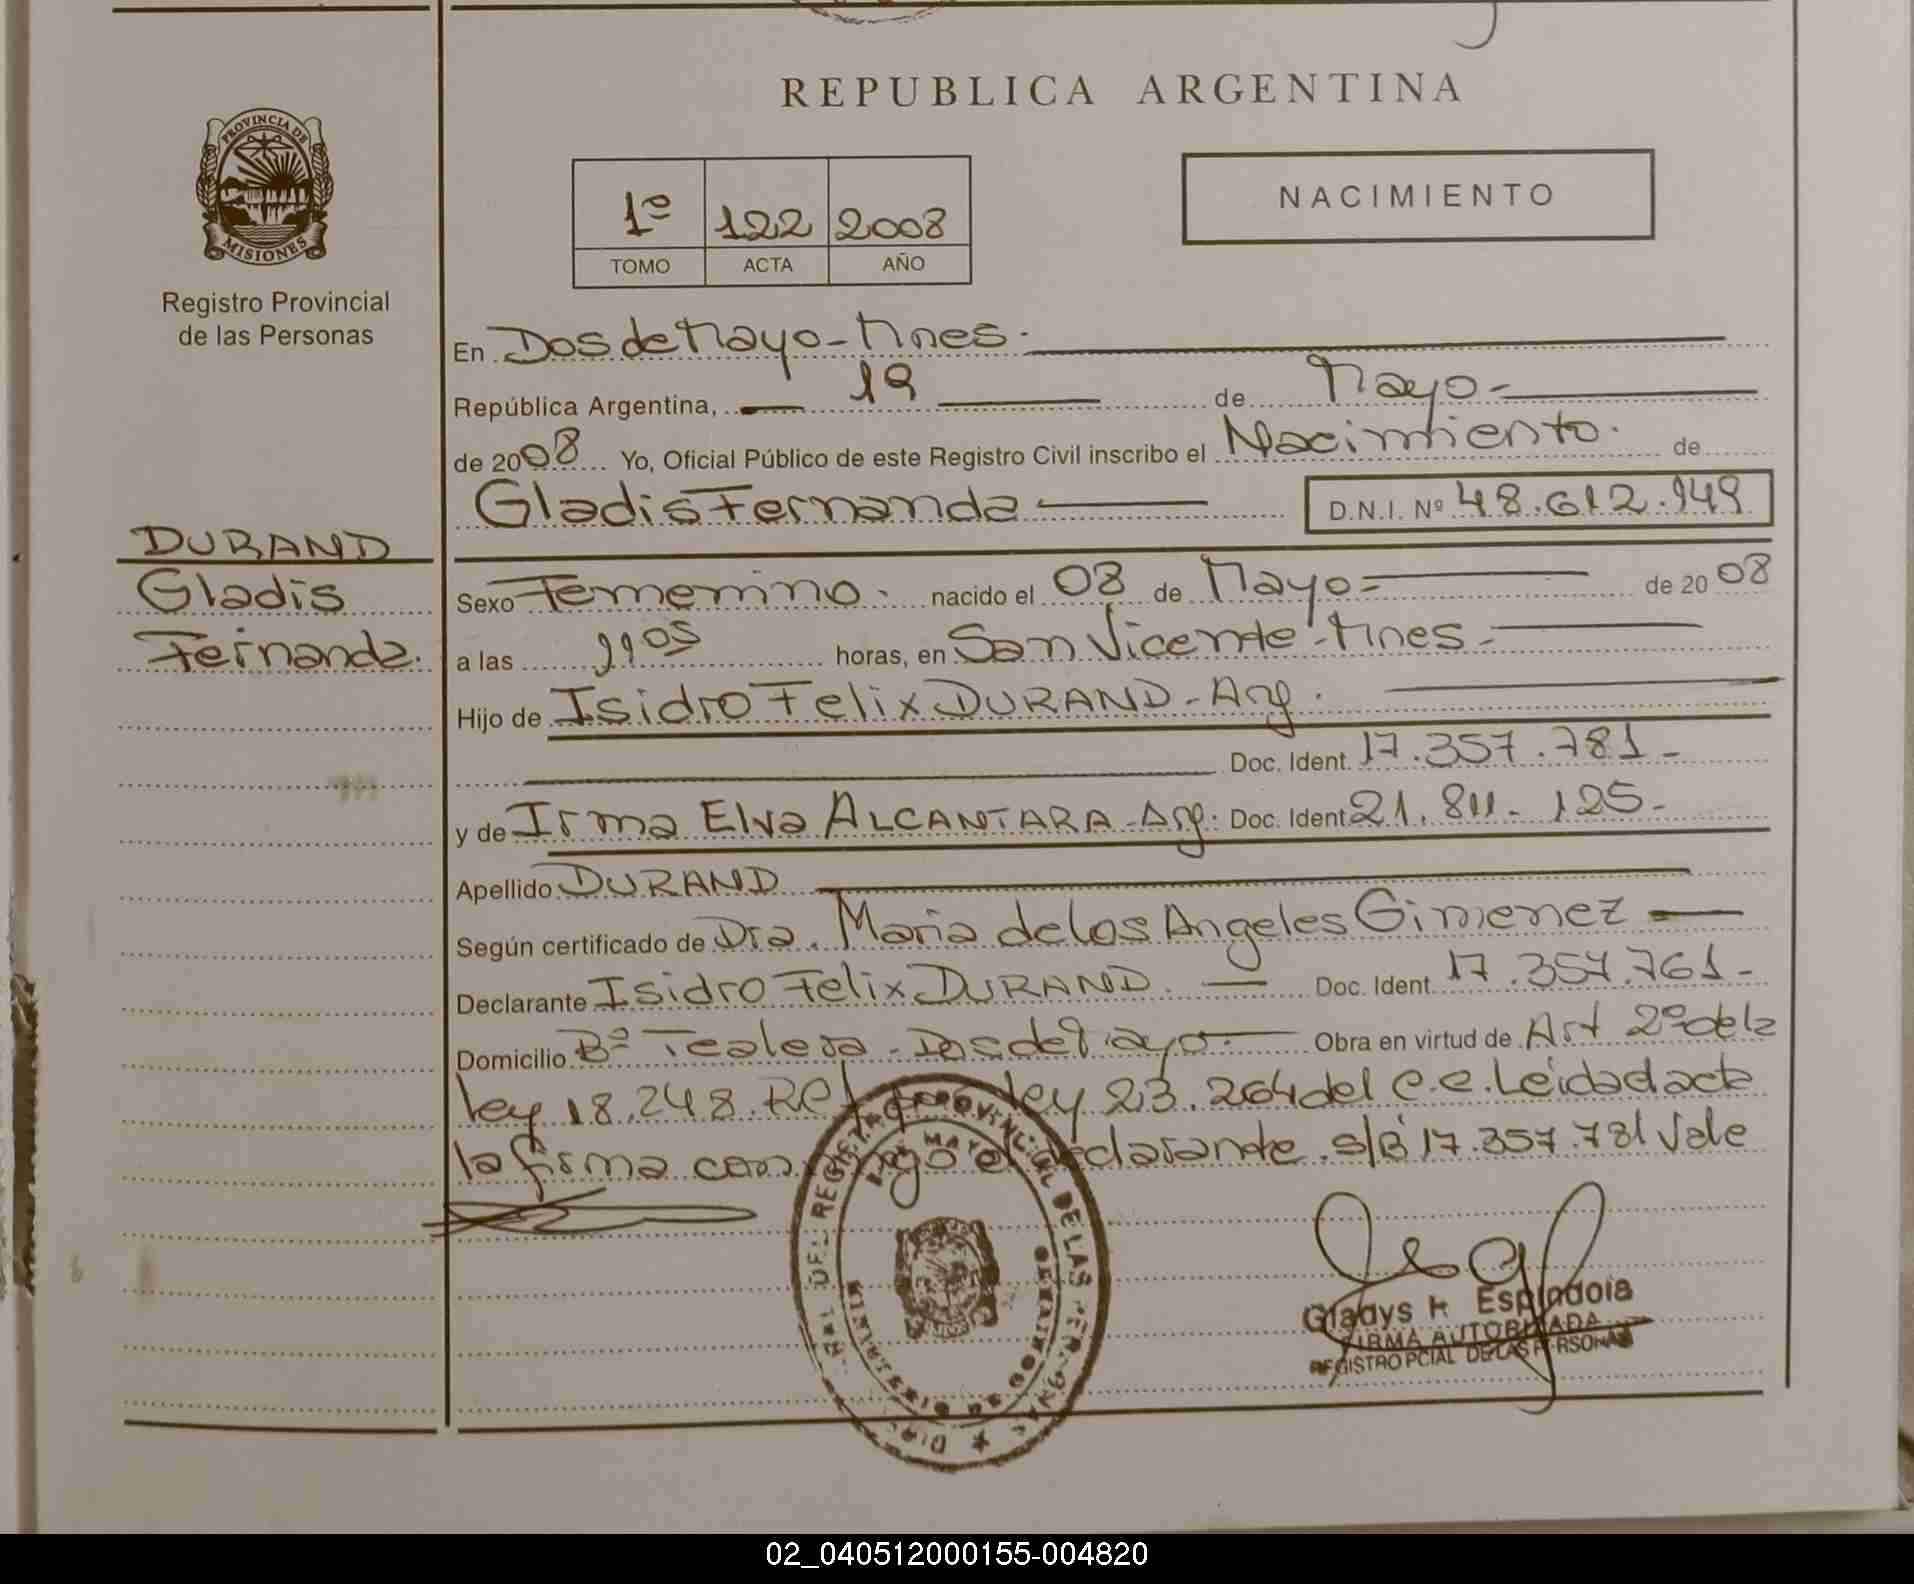 REPUBLICA ARGENTINA
PROVINCIA DE
MISIONES
Registro Provincial
de las Personas
1º 122 2008
TOMO ACTA AÑO
NACIMIENTO
En Dos de Mayo - Mnes.
República Argentina, 19 de Mayo -
de 2008 Yo, Oficial Público de este Registro Civil inscribo el Nacimiento. de
Gladis Fernanda D.N.I. Nº 48.612.949
DURAND
Gladis
Fernanda.
Sexo Femenino. nacido el 08 de Mayo - de 2008
a las 11 05 horas, en San Vicente - Mnes -
Hijo de Isidro Felix DURAND - Arg.
Doc. Ident. 17.357.781 -
y de Irma Elva ALCANTARA - Arg. Doc. Ident. 21.811.125 -
Apellido DURAND
Según certificado de Dra. Maria de los Angeles Gimenez
Declarante Isidro Felix DURAND. Doc. Ident. 17.357.761 -
Domicilio Bº Tealera - Dos de Mayo - Obra en virtud de Art 2º de la
ley 18.248. Ref ley 23.264 del C.C. Leida el acta
la firma conmigo el declarante. S/B 17.357.781 Vale
REGISTRO PROVINCIAL DE LAS PERSONAS
DOS DE MAYO
MISIONES
Gladys H. Espindola
FIRMA AUTORIZADA
REGISTRO PCIAL DE LAS PERSONAS
02_040512000155-004820